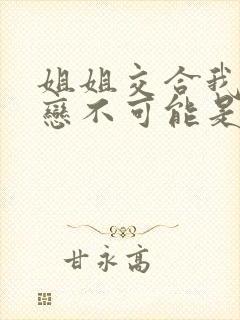 姐姐交合我
戀不可能是
甘永高